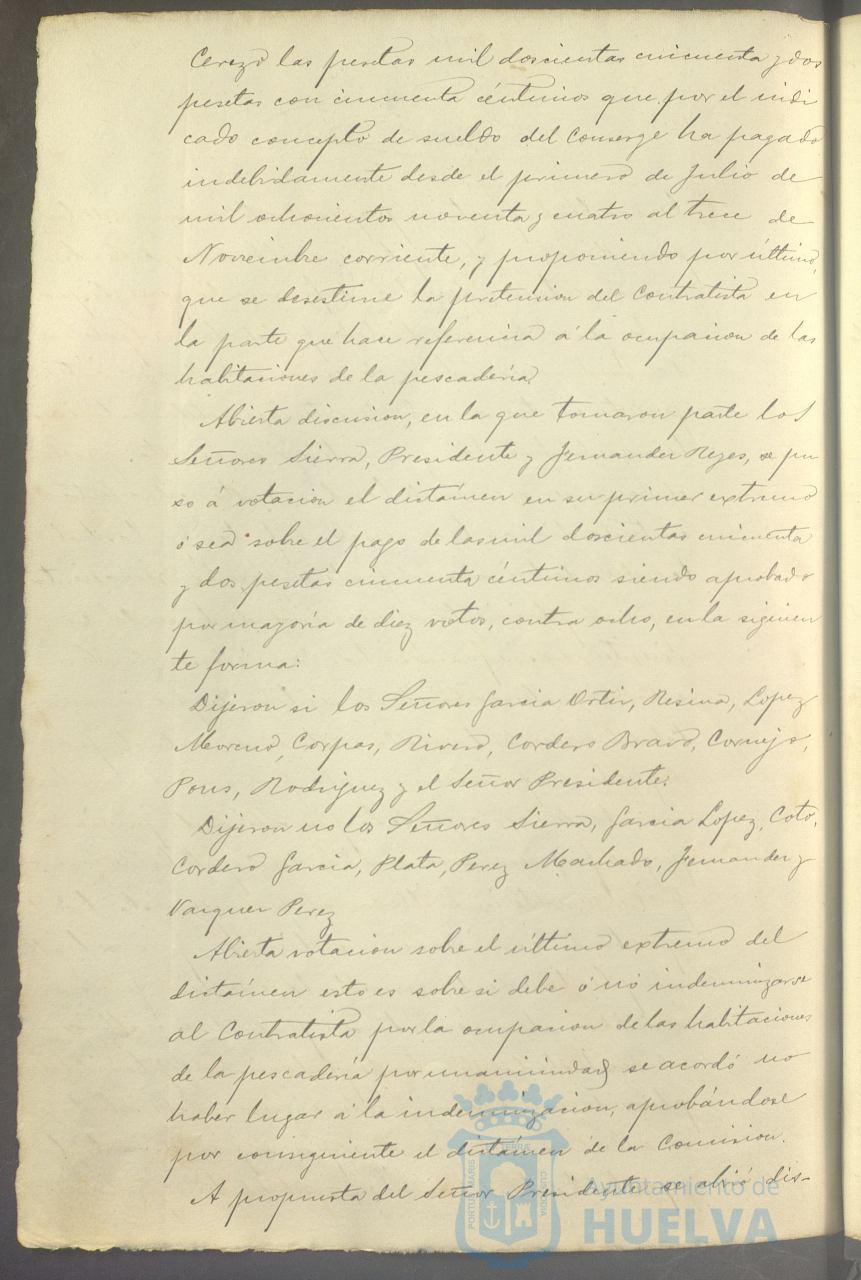 Cerezo las pesetas mil doscientas cincuenta y dos
pesetas con cincuenta céntimos que por el indi
cado concepto de sueldo del Conserge ha pagado
indebidamente desde el primero de Julio de
mil ochocientos noventa y cuatro al trece de
Noviembre corriente, y proponiendo por último,
que se desestime la pretension del Contratista en
la parte que hace referencia á la ocupacion de las
habitaciones de la pescadería.
Abierta discusion, en la que tomaron parte los
Señores Sierra, Presidente y Fernandez Reyes, se pu
so á votacion el dictámen en su primer extremo
ó sea sobre el pago de las mil doscientas cincuenta
y dos pesetas cincuenta céntimos siendo aprobado
por mayoría de diez votos, contra ocho, en la siguien
te forma:
Dijeron si los Señores Garcia Ortiz, Resina, Lopez
Moreno, Corpas, Rivero, Cordero Bravo, Cornejo,
Pons, Rodriguez y el Señor Presidente.
Dijeron no los Señores Sierra, Garcia Lopez, Coto,
Cordero Garcia, Plata, Perez Machado, Fernandez y
Vazquez Perez
Abierta votacion sobre el último extremo del
dictámen esto es sobre si debe ó nó indemnizarse
al Contratista por la ocupacion de las habitaciones
de la pescadería por unanimidad se acordó no
haber lugar á la indemnizacion, aprobándose
por consiguiente el dictámen de la Comision.
A propuesta del Señor Presidente se abrió dis-
Ayuntamiento de
HUELVA